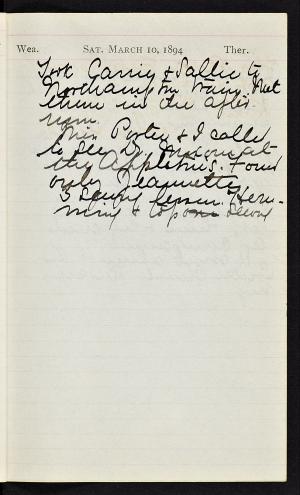 Wea. SAT. MARCH 10, 1894 Ther.
Took Carrie & Sallie to
Northampton train. Met
them in the after
noon.
Miss Porter & I called
to see Dr. at
the Appletons. Found
only Jeannette.
3 Sewing lesson. Hem-
ming &